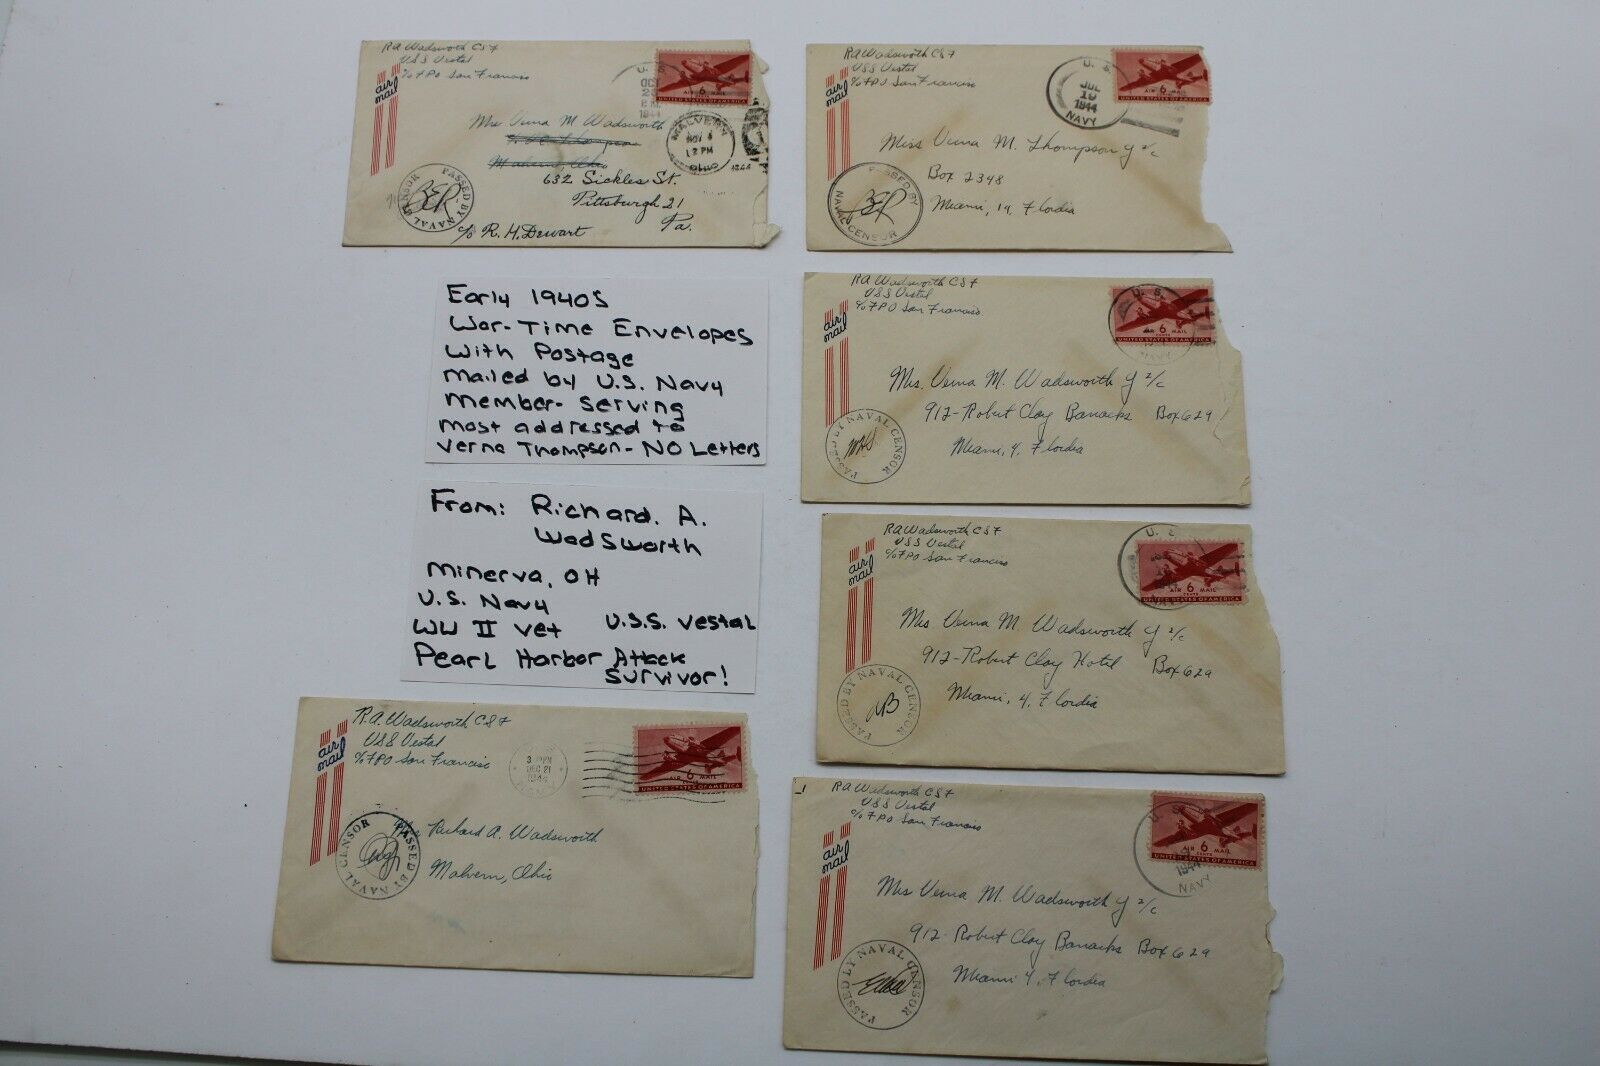 RA Wadsworth CSF
USS Vestal
c/o FPO San Francisco
air
mail
U. S.
OCT
1944
AIR 6 MAIL
UNITED STATES OF AMERICA
Mrs Verna M Wadsworth
Malvern, Ohio
632 Sickles St.
Pittsburgh 21
Pa.
c/o R. H. Dewart
MALVERN
NOV 4
12 PM
OHIO
1944
PASSED BY NAVAL CENSOR
RA Wadsworth CSF
USS Vestal
c/o FPO San Francisco
air
mail
U. S.
JUL
19
1944
NAVY
AIR 6 MAIL
UNITED STATES OF AMERICA
Miss Verna M. Thompson Y 2/c
Box 2348
Miami, 19, Flordia
PASSED BY
NAVAL CENSOR
RA Wadsworth CSF
USS Vestal
c/o FPO San Francisco
air
mail
U. S.
NAVY
AIR 6 MAIL
UNITED STATES OF AMERICA
Mrs. Verna M. Wadsworth Y 2/c
912-Robert Clay Barracks Box 629
Miami, 4, Flordia
PASSED BY NAVAL CENSOR
Early 1940s
War-Time Envelopes
with Postage
mailed by U.S. Navy
member- serving
most addressed to
Verna Thompson- NO Letters
From: Richard. A.
Wadsworth
Minerva, OH
U.S. Navy
WW II vet U.S.S. Vestal
Pearl Harbor Attack
Survivor!
RA Wadsworth CSF
USS Vestal
c/o FPO San Francisco
air
mail
U. S.
AIR 6 MAIL
CENTS
UNITED STATES OF AMERICA
Mrs Verna M Wadsworth Y 2/c
912-Robert Clay Hotel Box 629
Miami, 4, Flordia
PASSED BY NAVAL CENSOR
R.A. Wadsworth CSF
USS Vestal
c/o FPO San Francisco
air
mail
3 PM
DEC 21
1944
AIR 6 MAIL
CENTS
UNITED STATES OF AMERICA
Richard A. Wadsworth
Malvern, Ohio
PASSED BY NAVAL CENSOR
RA Wadsworth CSF
USS Vestal
c/o FPO San Francisco
air
mail
U.
1944
NAVY
AIR 6 MAIL
CENTS
UNITED STATES OF AMERICA
Mrs Verna M. Wadsworth Y 2/c
912- Robert Clay Barracks Box 629
Miami 4, Flordia
PASSED BY NAVAL CENSOR